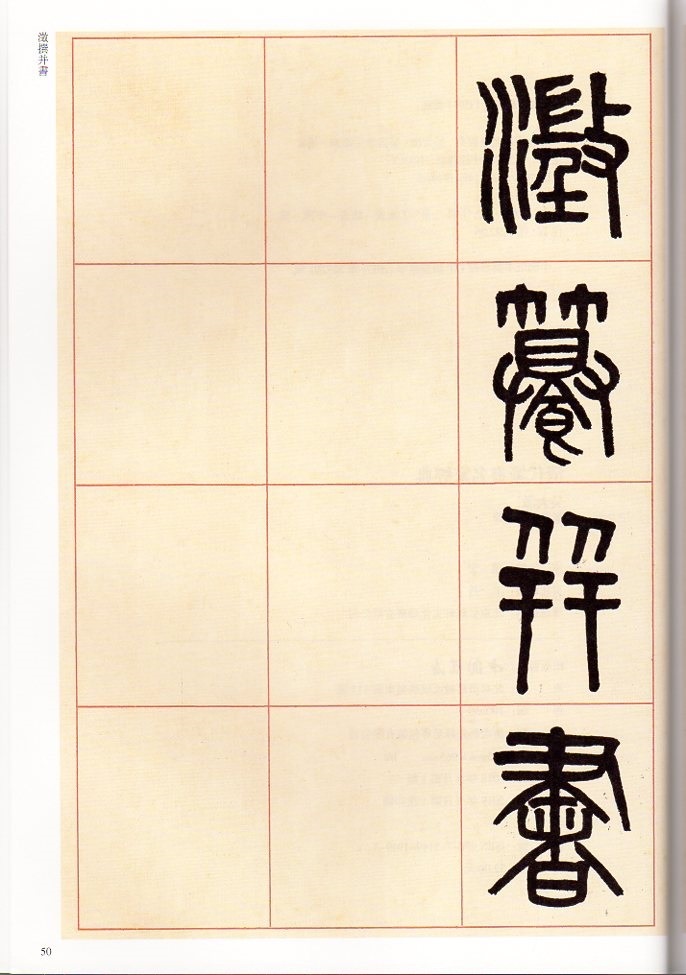 澂籑并書
澂撰并書
50